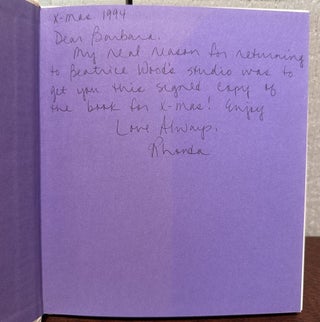 X-mas 1994
Dear Barbara.
My real reason for returning
to Beatrice Wood's studio was to
get you this signed copy of
the book for X-mas! Enjoy
Love Always.
Rhonda